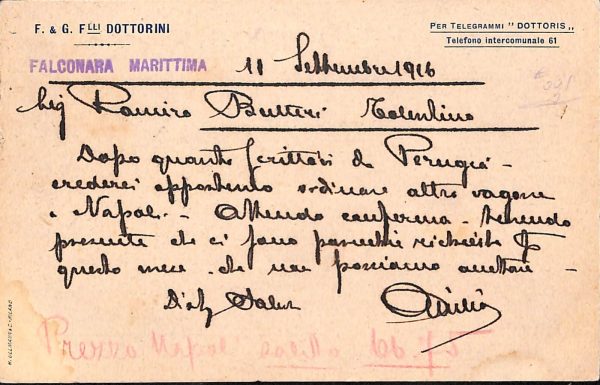 F. & G. Flli DOTTORINI
PER TELEGRAMMI "DOTTORIS"
Telefono intercomunale 61
FALCONARA MARITTIMA
11 Settembre 1916
Sig Ramiro Butteri Tolentino
Dopo quanto scrittovi da Perugia -
crederei opportuno ordinare altro vagone
a Napoli - Attendo conferma - tenendo
presente che ci sono parecchie richieste
questo mese che non possiamo accettare -
Disti Saluti
Prezzo Napoli